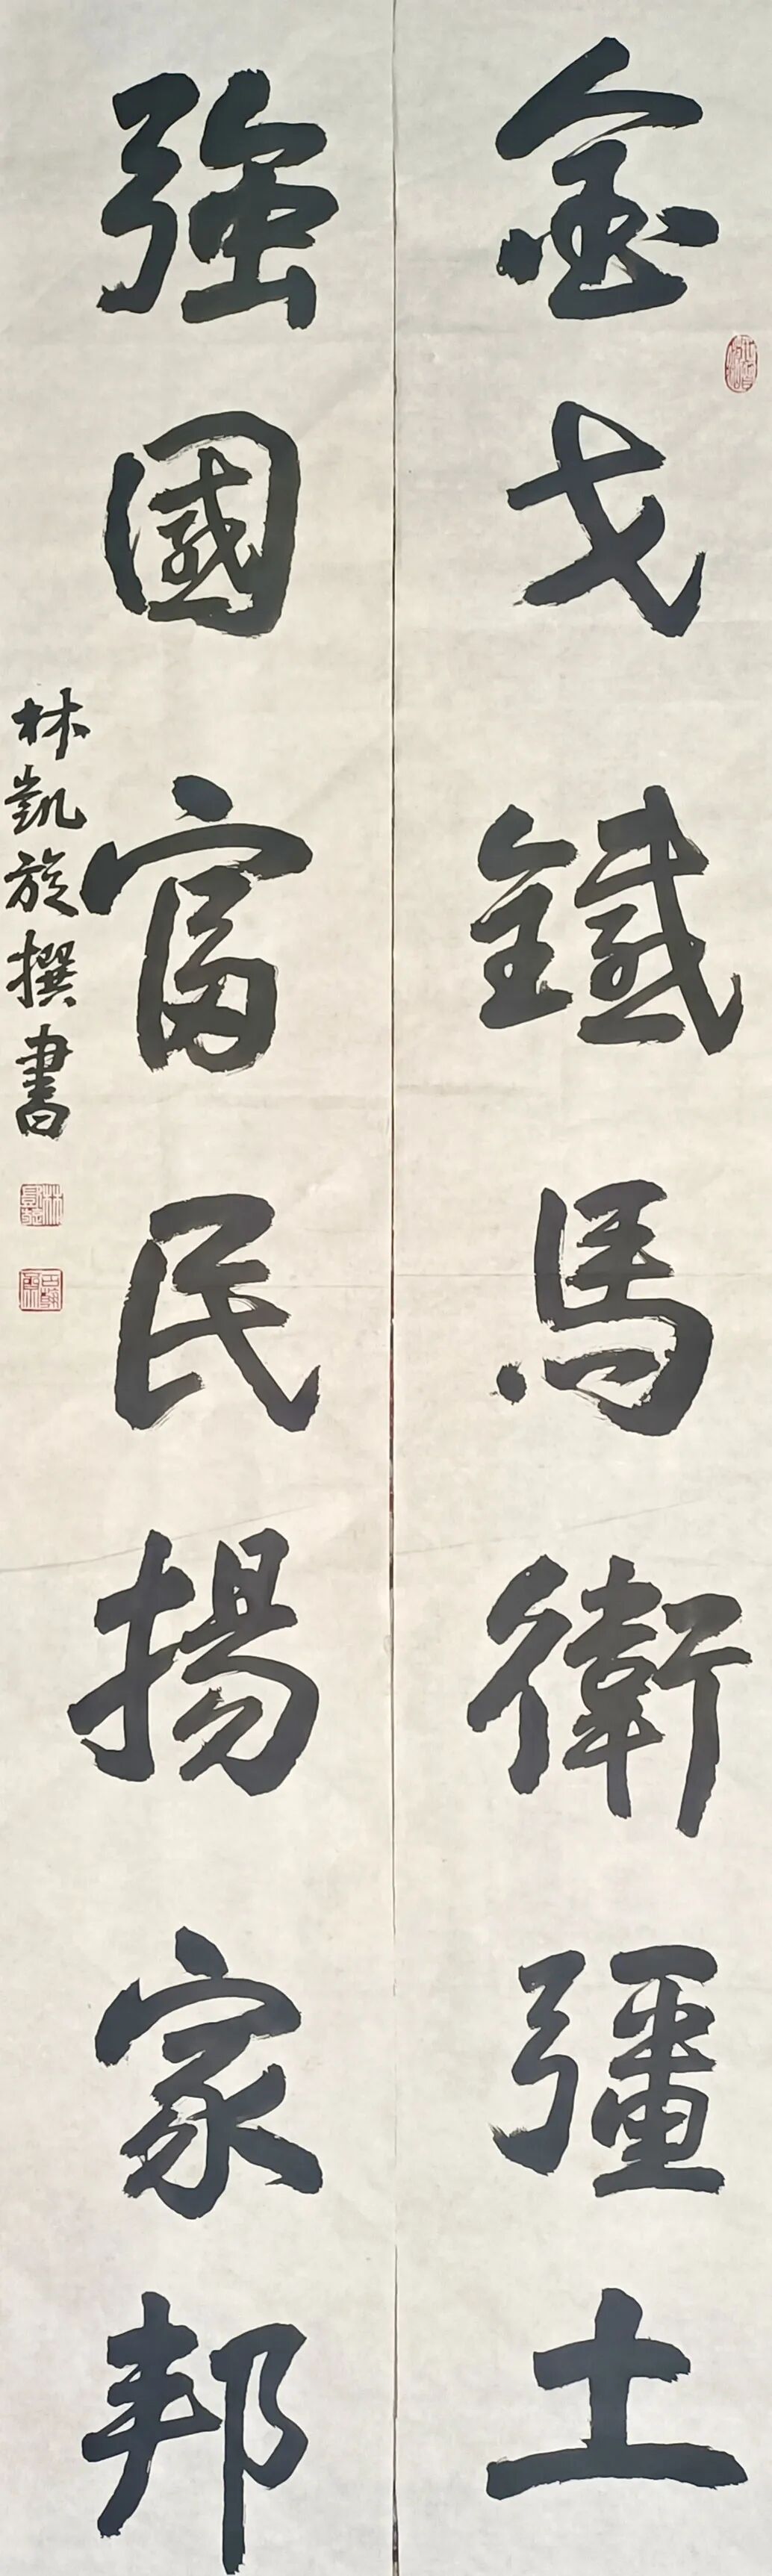 金戈鐵馬衛疆土
強國富民揚家邦
林凱旋撰書